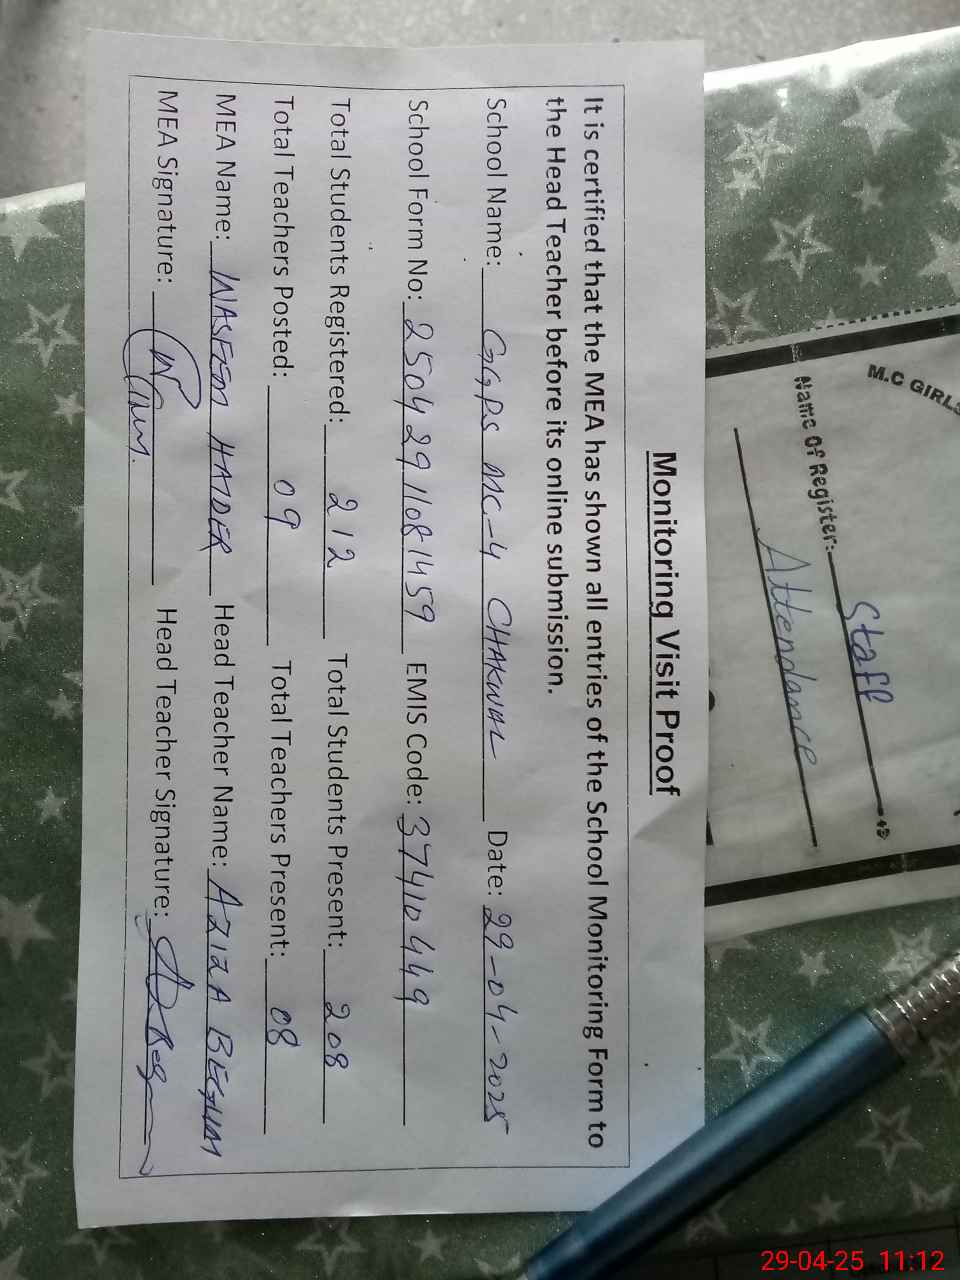 Monitoring Visit Proof
It is certified that the MEA has shown all entries of the School Monitoring Form to
the Head Teacher before its online submission.
School Name: GGPS MC-4 CHAKWAL Date: 29-04-2025
School Form No: 25042911081459 EMIS Code: 37410449
Total Students Registered: 212 Total Students Present: 208
Total Teachers Posted: 09 Total Teachers Present: 08
MEA Name: WASEEM HAIDER Head Teacher Name: AZIZA BEGUM
MEA Signature: Head Teacher Signature:
M.C GIRLS
Name Of Register:- Staff
Attendance
29-04-25 11:12